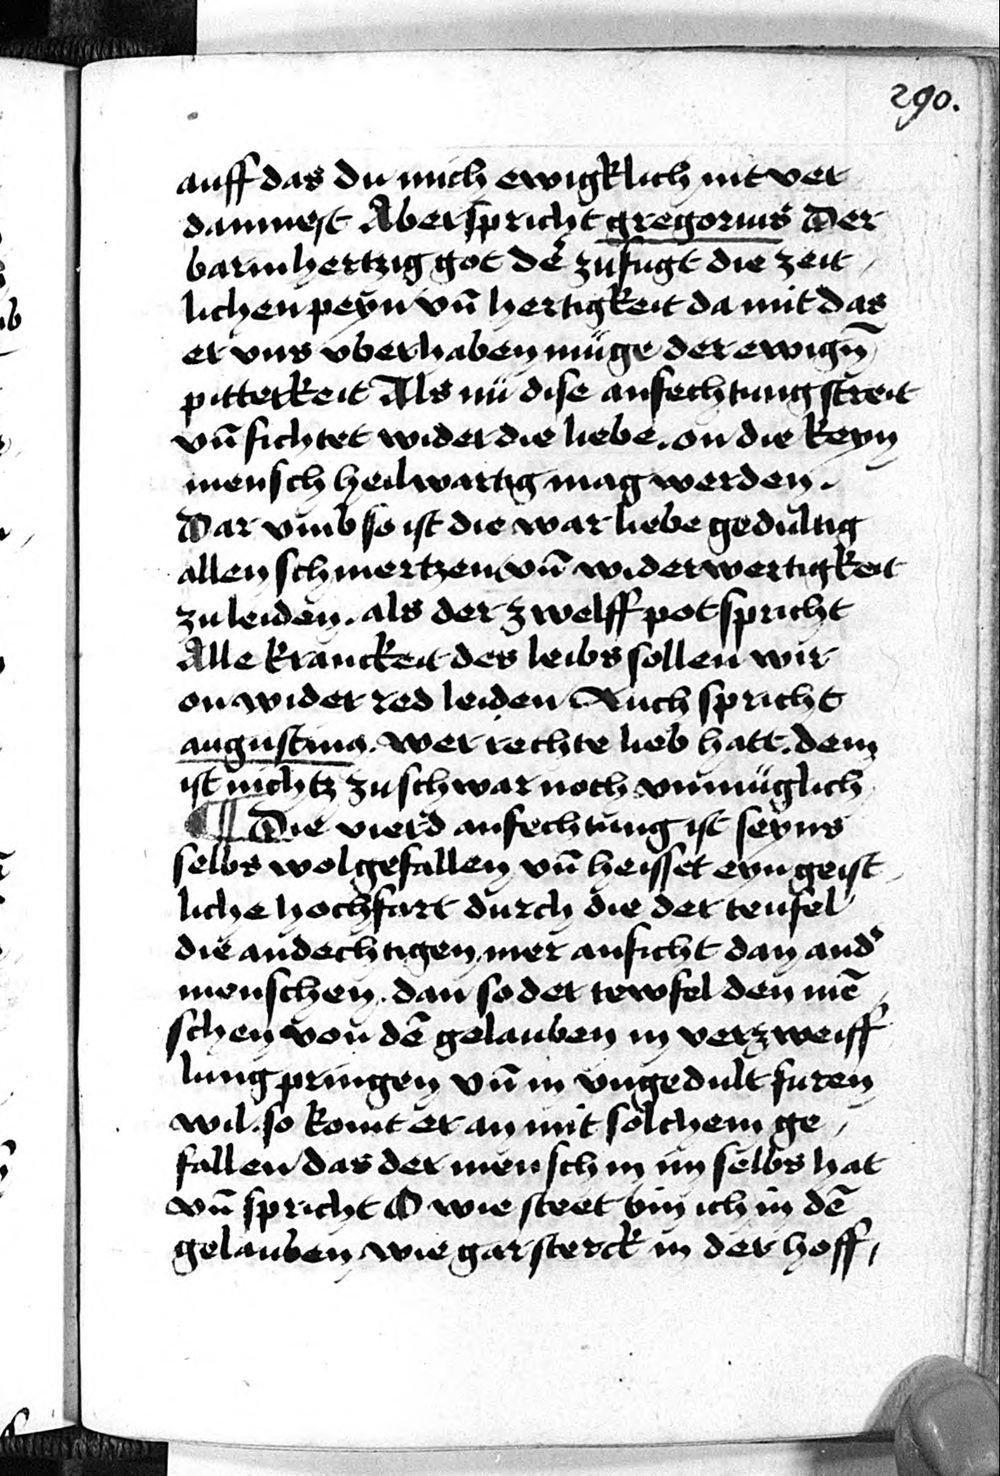 290.
auff das du mich ewigklich nit ver
damnest Aber spricht gregorius Der
barmhertzig got der zufugt die zeit
lichen peyn vn̄ hertigkeit da mit das
er vns vberhaben müge der ewign̄
pitterkeit Als nü dise anfechtung streit
vn̄ fichtet wider die liebe. on die keyn
mensch heilwartig mag werden.
Dar vmb so ist die war liebe gedultig
allen schmertzen vn̄ widerwertigkeit
zu leiden. als der zwelff pot spricht
Alle kranckeit des leibs sollen wir
on wider red leiden Auch spricht
augustinus. wer rechte lieb hatt. dem
ist nichtz zu schwar noch vnmüglich
¶ Die vierd anfechtung ist seyns
selbs wolgefallen vn̄ heisset eyn geist
liche hochfart durch die der teufel
die andechtigen mer anficht dan and
menschen. dan so der tewfel den mē
schen von dē gelauben in verzweiff
lung pringen vn̄ in vngedult furen
wil. so komt er an mit solchem ge
fallen das der mensch in im selbs hat
vn̄ spricht O wie steet bin ich in dē
gelauben wie gar sterck in der hoff